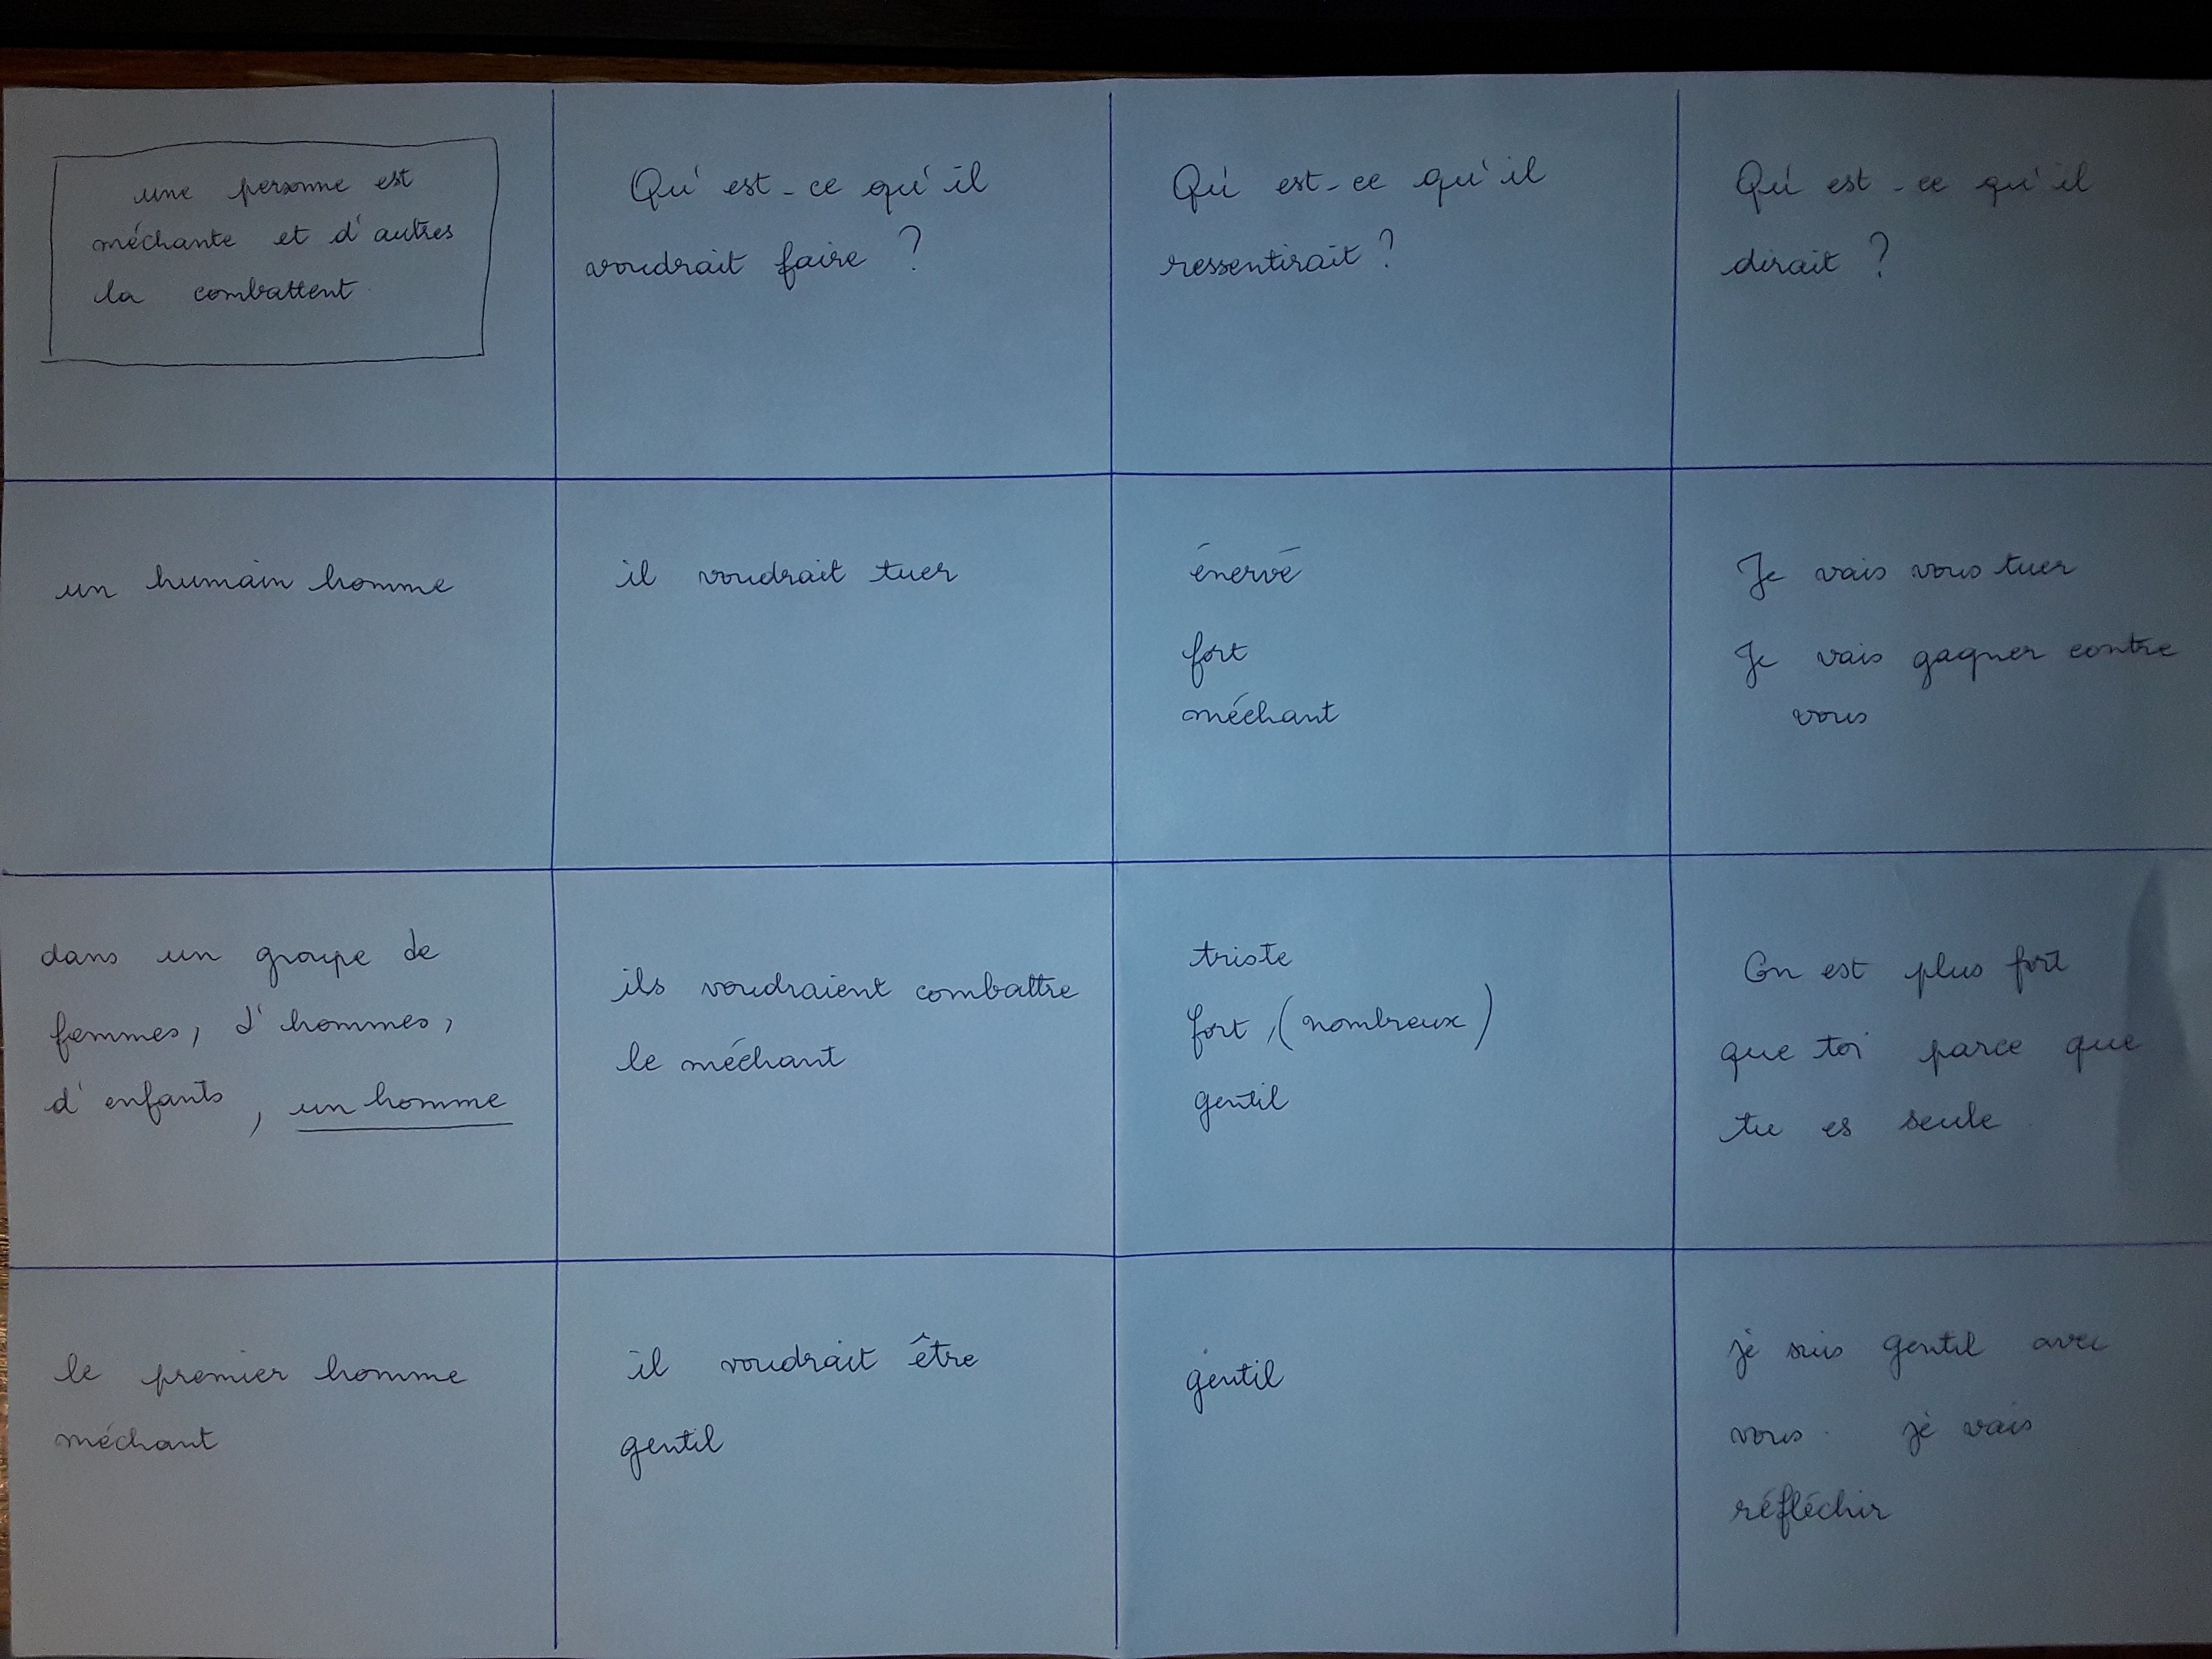 une personne est
méchante et d'autres
la combattent
Qu'est-ce qu'il
voudrait faire ?
Qu'est-ce qu'il
ressentirait ?
Qu'est-ce qu'il
dirait ?
un humain homme
il voudrait tuer
énervé
fort
méchant
Je vais vous tuer
Je vais gagner contre
vous
dans un groupe de
femmes, d'hommes,
d'enfants, un homme
ils voudraient combattre
le méchant
triste
fort, (nombreux)
gentil
On est plus fort
que toi parce que
tu es seule
le premier homme
méchant
il voudrait être
gentil
gentil
je suis gentil avec
vous. je vais
réfléchir